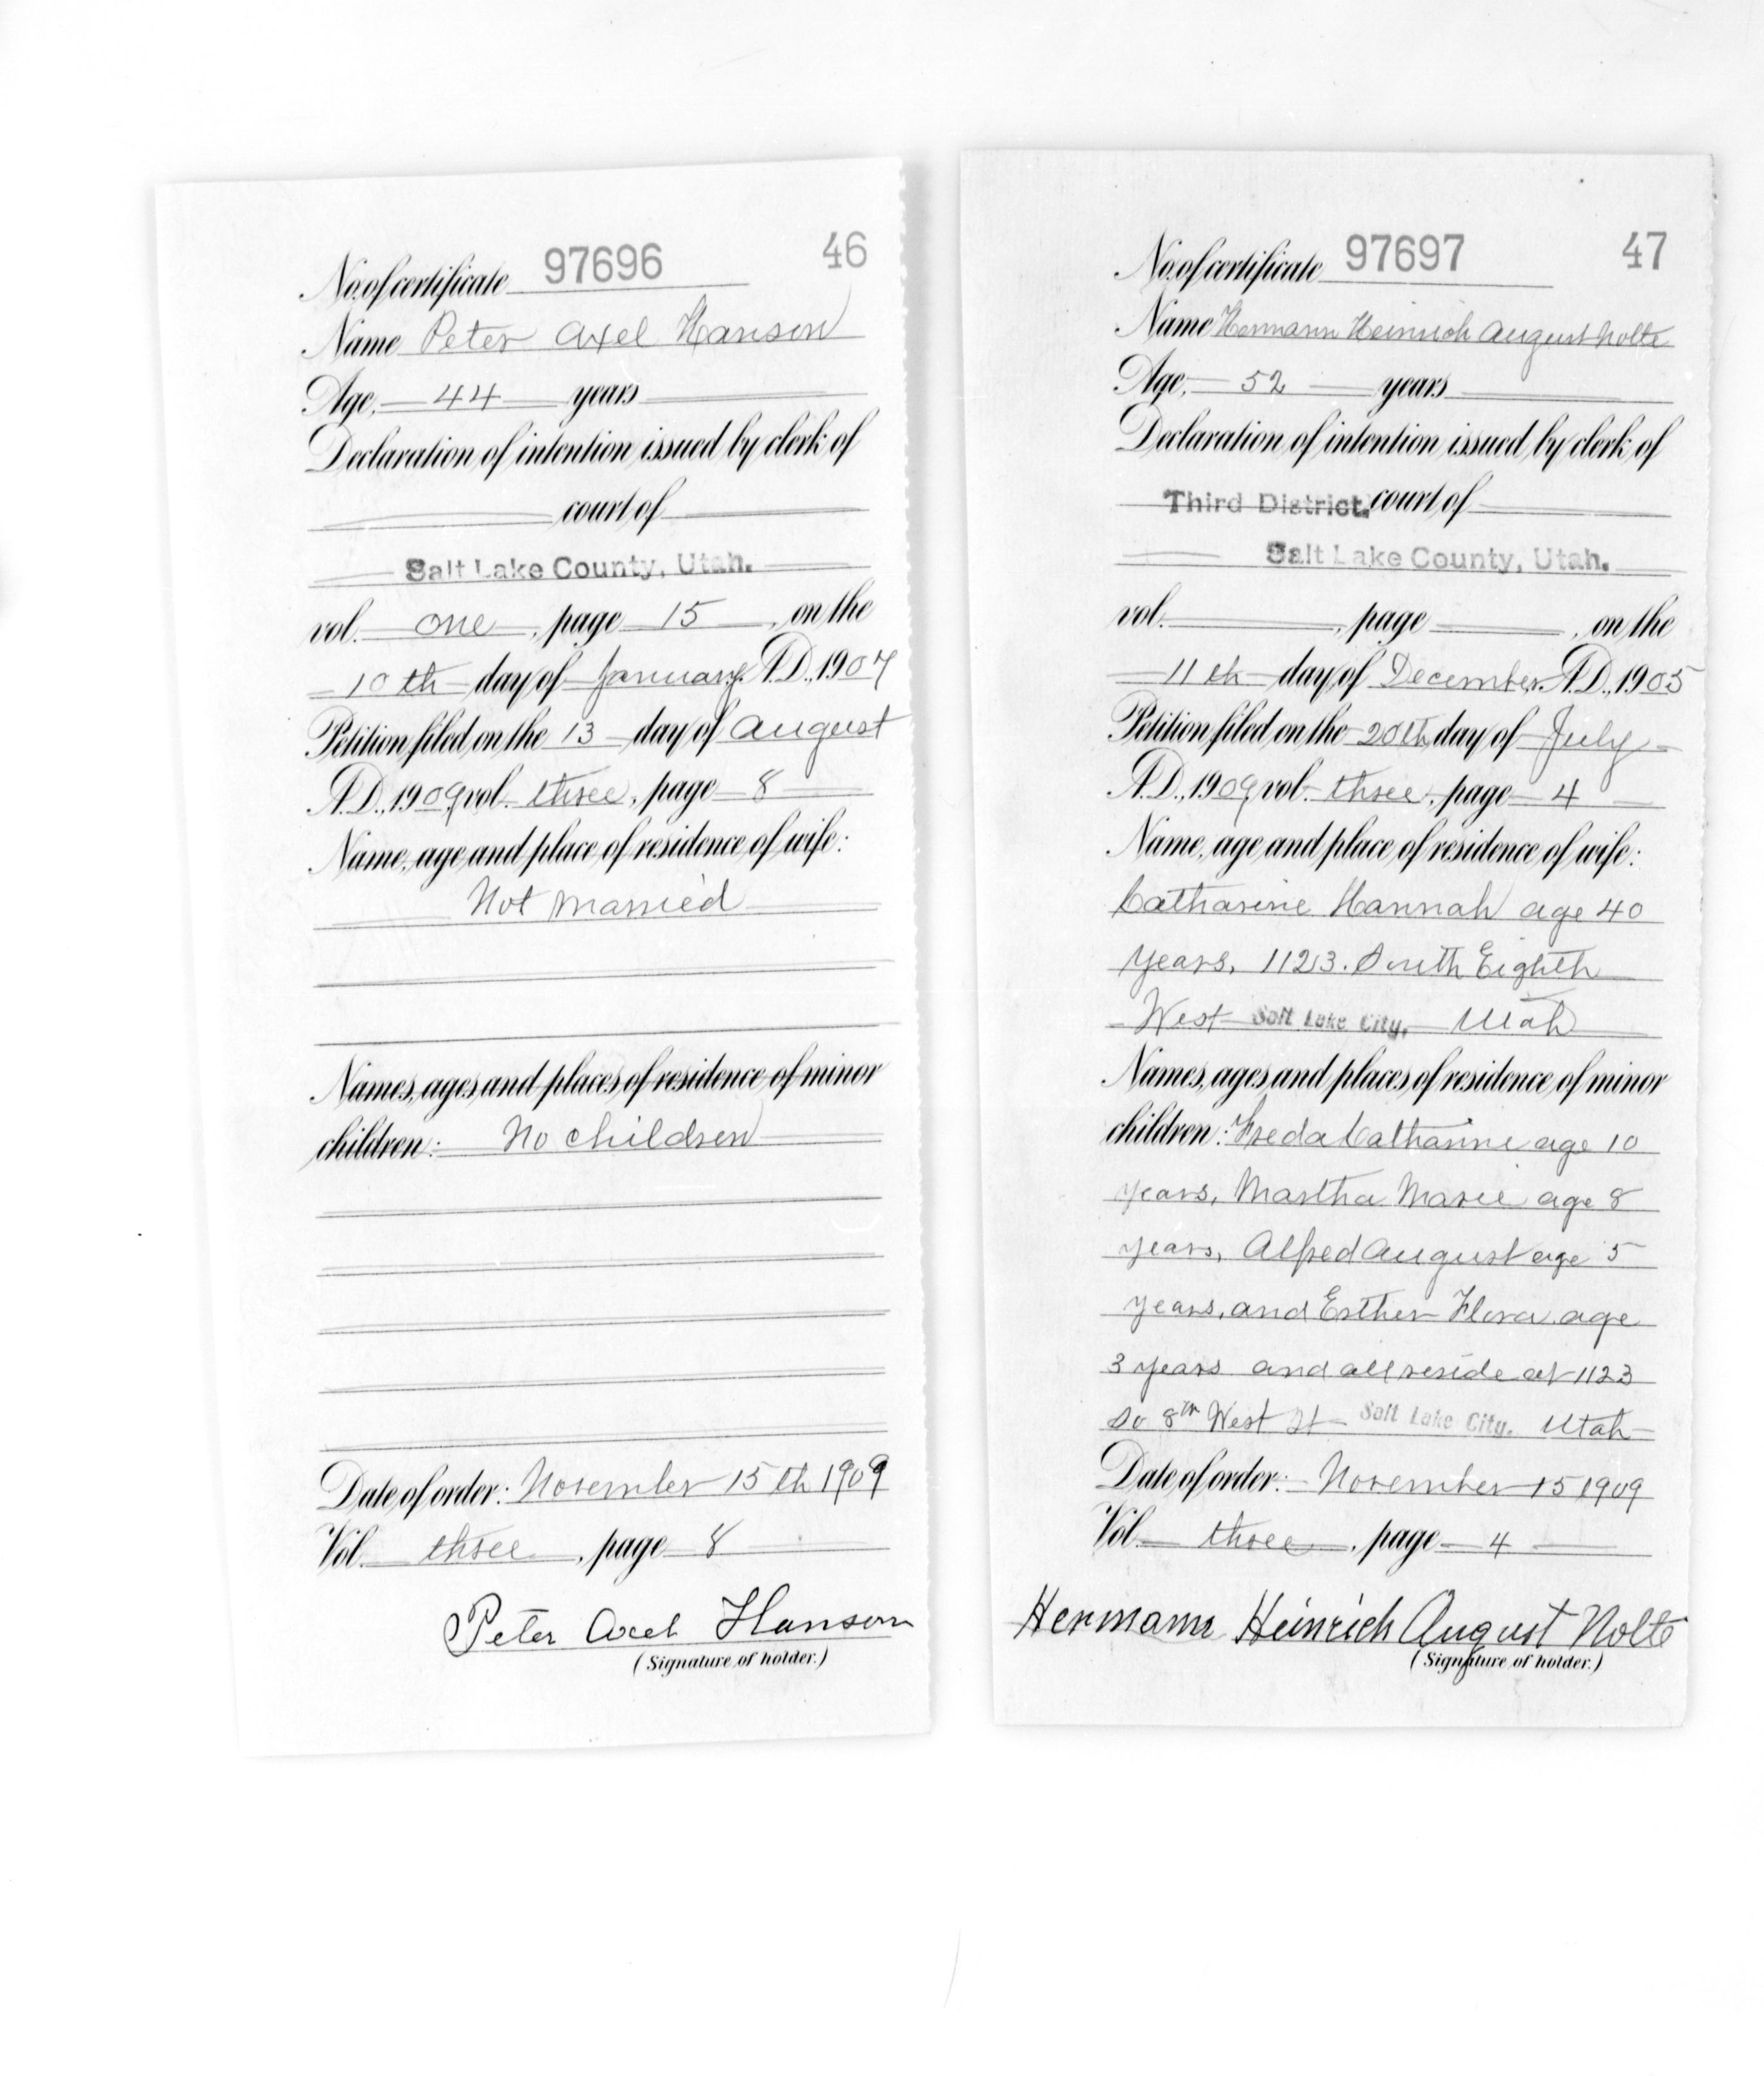 No. of certificate 97696 46
Name Peter Axel Hanson
Age, 44 years
Declaration of intention issued by clerk of
court of
Salt Lake County, Utah.
vol. one, page 15, on the
10 th day of January A.D., 1907
Petition filed on the 13 day of August
A.D., 1909, vol. three, page 8
Name, age and place of residence of wife:
Not married
Names, ages and places of residence of minor
children: No children
Date of order: November 15 th 1909
Vol. three, page 8
Peter Axel Hanson
(Signature of holder.)
No. of certificate 97697 47
Name Hermann Heinrich August Nolte
Age, 52 years
Declaration of intention issued by clerk of
Third District. court of
Salt Lake County, Utah.
vol. , page , on the
11 th day of December A.D., 1905
Petition filed on the 20th day of July
A.D., 1909, vol. three, page 4
Name, age and place of residence of wife:
Catharine Hannah age 40
years, 1123. South Eighth
West Salt Lake City, Utah
Names, ages and places of residence of minor
children: Freda Catharine age 10
years, Martha Marie age 8
years, Alfred August age 5
years, and Esther Flora age
3 years and all reside at 1123
So 8th West St Salt Lake City, Utah
Date of order: November 15 1909
Vol. three, page 4
Hermann Heinrich August Nolte
(Signature of holder.)